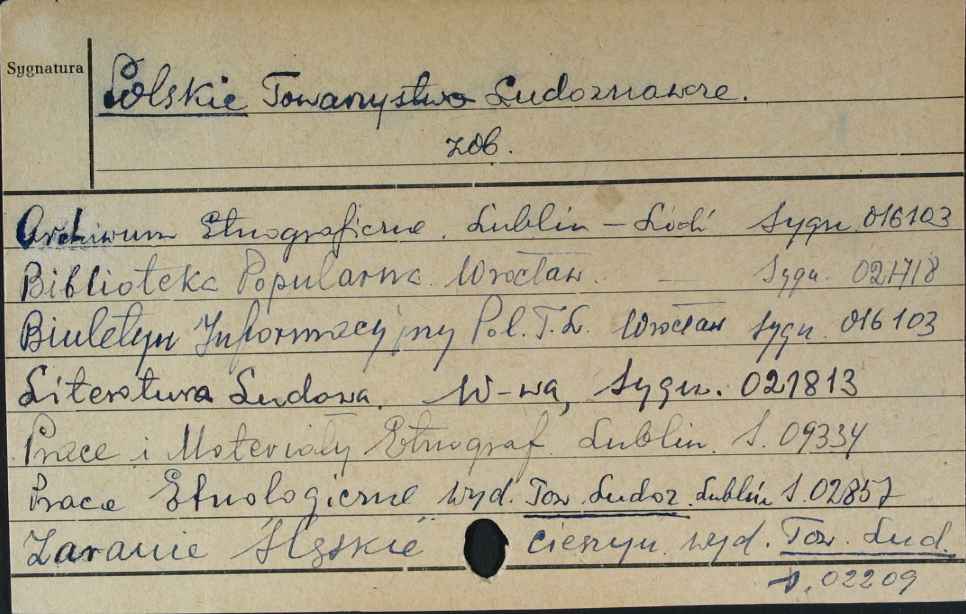 Sygnatura
Polskie Towarzystwo Ludoznawcze.
zob.
Archiwum Etnograficzne. Lublin – Łódź Sygn. 016103
Biblioteka Popularna. Wrocław. — Sygn. 021718
Biuletyn Informacyjny Pol. T. L. Wrocław Sygn. 016103
Literatura Ludowa. W-wa, Sygn. 021813
Prace i Materiały Etnograf. Lublin. S. 09334
Prace Etnologiczne wyd. Tow. Ludoz. Lublin S. 02857
Zaranie Śląskie Cieszyn. wyd. Tow. Lud.
s. 02209